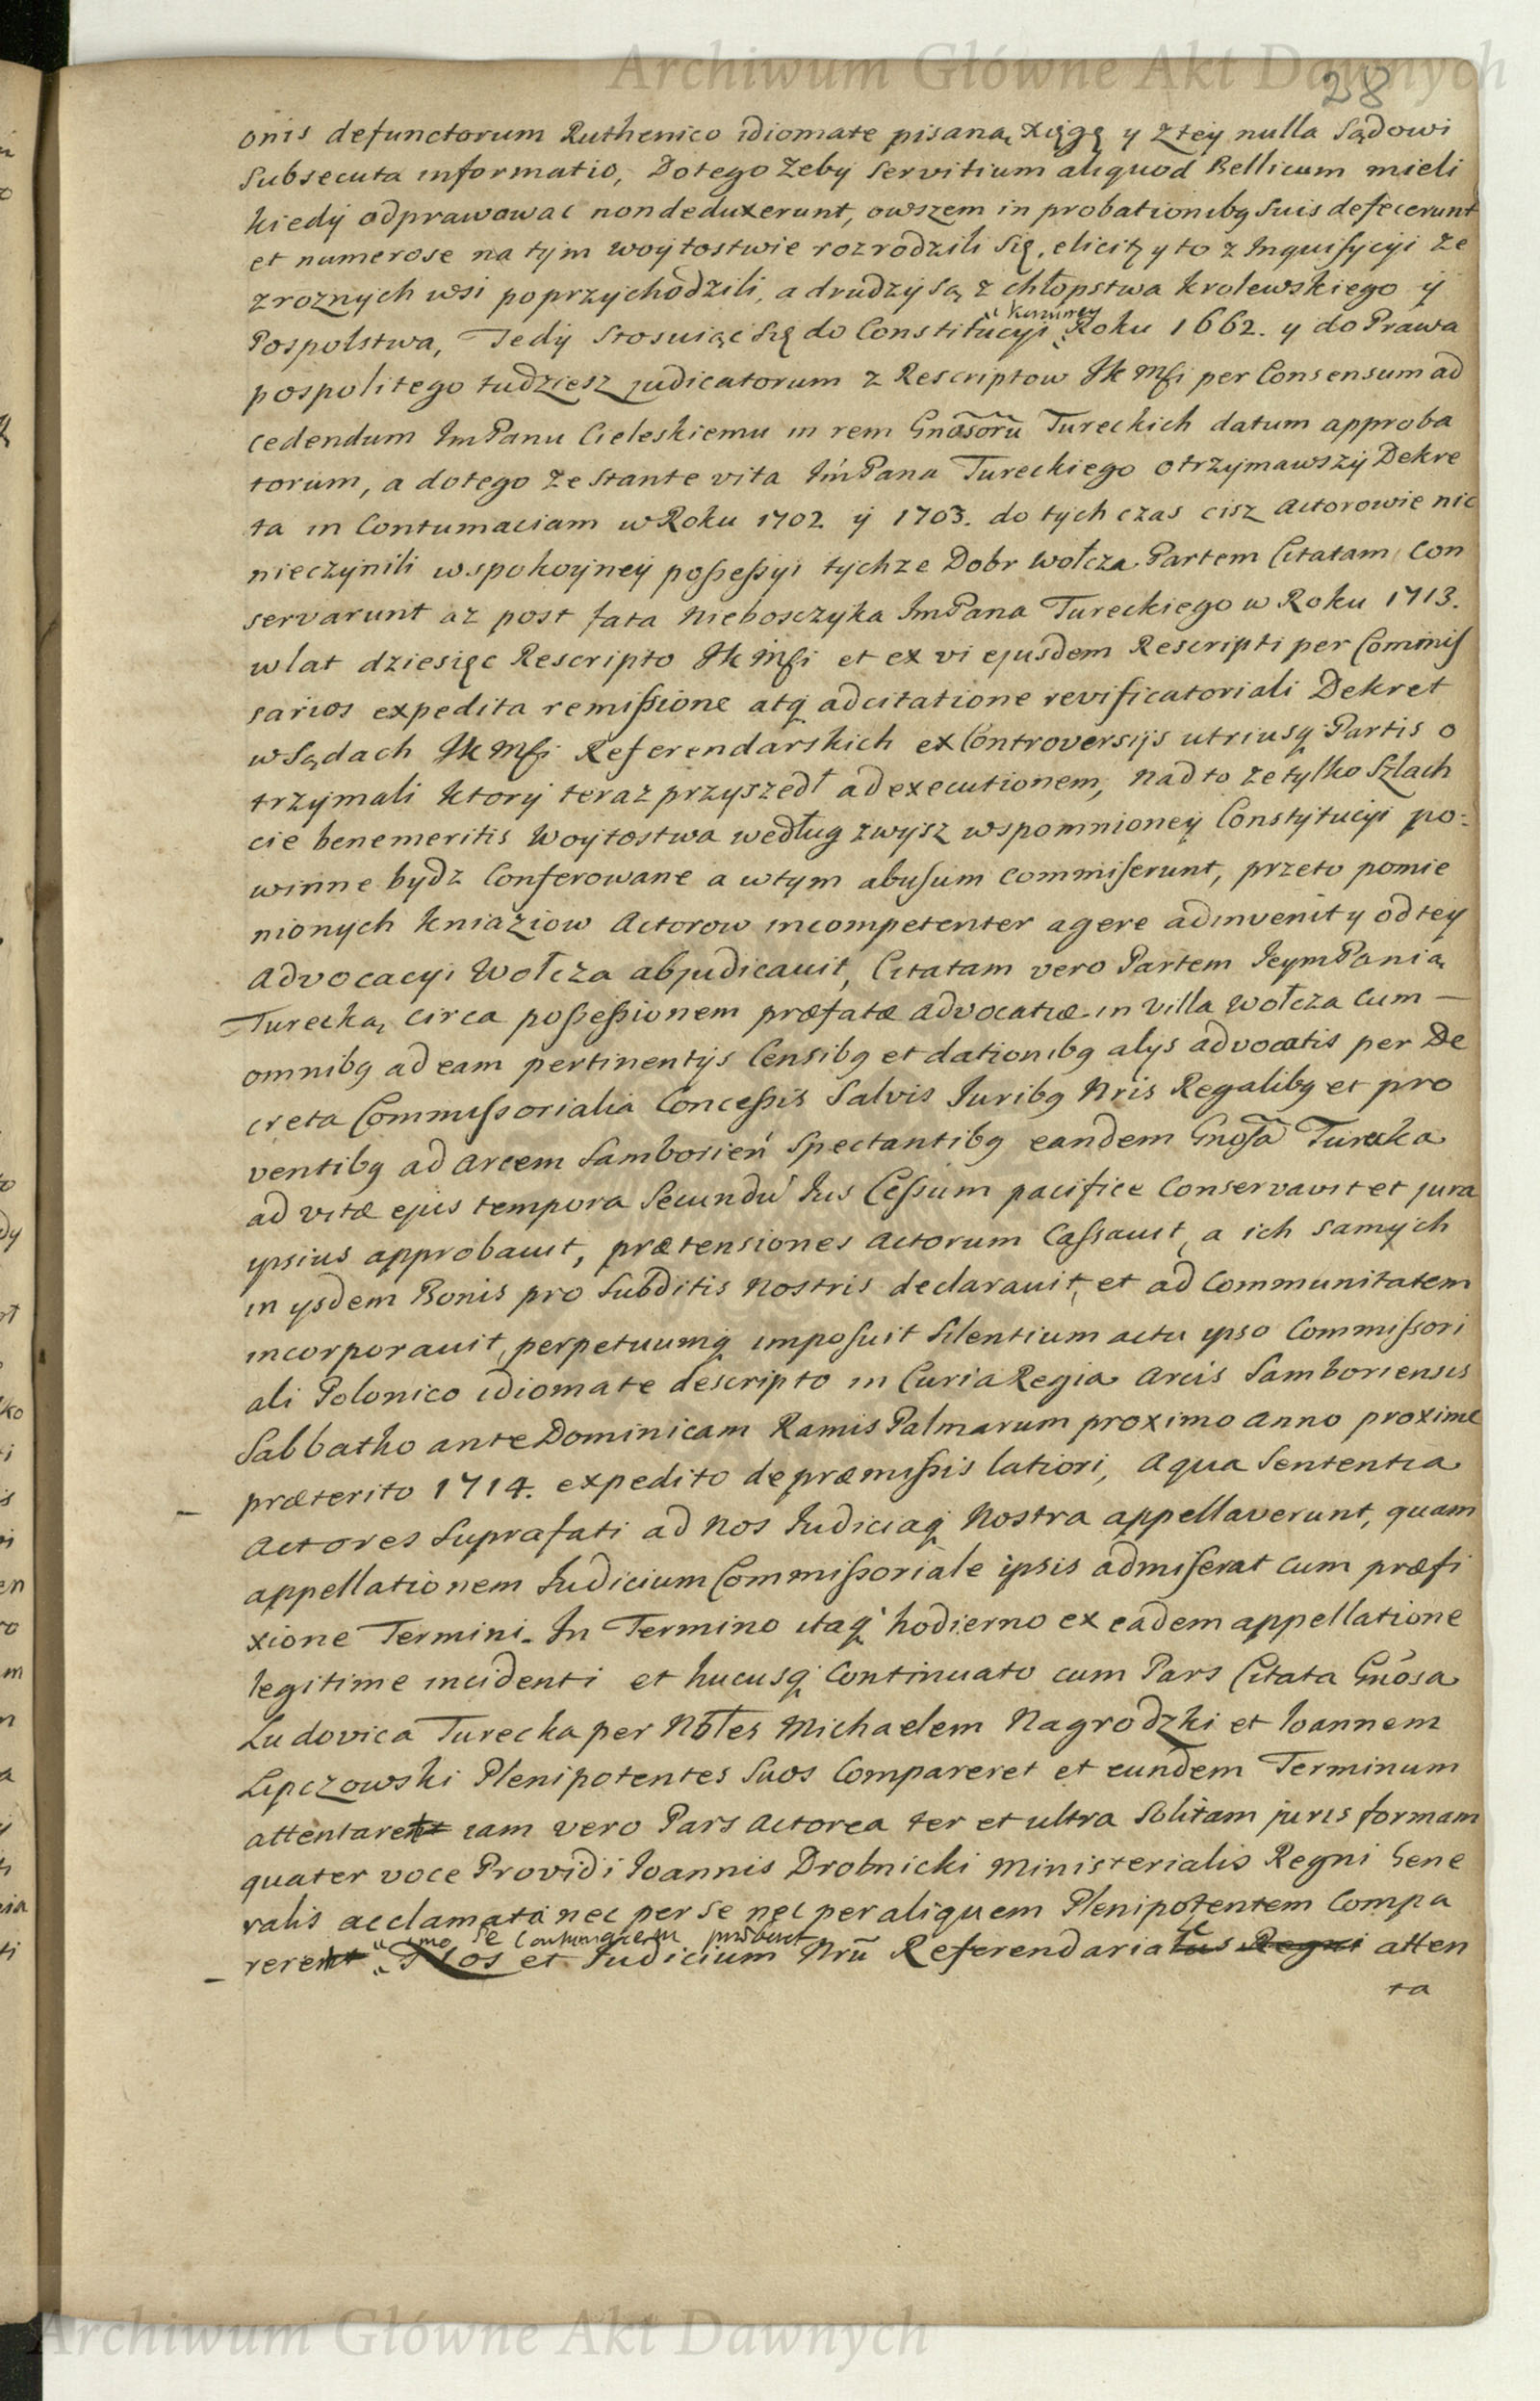 Archiwum Główne Akt Dawnych
28
onis defunctorum Ruthenico idiomate pisaną Xięgę y z tey nulla Sądowi
Subsecuta informatio, Dotego żeby Servitium aliquod Bellicum mieli
kiedÿ odprawowac non deduxerunt, owszem in probationibq suis defecerunt
et numerose na tym woÿtostwie rozrodzili się, elicit, y to z Inquisycÿi że
z roznych wsi poprzychodzili, a drudzÿ są z chłopstwa krolewskiego ÿ
Pospolstwa, Tedÿ Stosuiąc się do Constitucÿi Roku 1662. y do Prawa
pospolitego tudziesz judicatorum z Rescriptow JK Msci per Consensum ad
cedendum ImPanu Cieleskiemu in rem Gnosorũ Tureckich datum approba
torum, a dotego że stante vita ImPana Tureckiego otrzymawszÿ Dekre
ta in Contumaciam w Roku 1702 ÿ 1703. do tych czas cisz Actorowie nic
nieczÿnili w spokoÿneÿ possessÿi tychze Dobr Wołcza Partem Citatam Con
servarunt az post fata Niebosczyka ImPana Tureckiego w Roku 1713.
w lat dziesięc Rescripto JK Msci et ex vi ejusdem Rescripti per Commis
sarios expedita remissione atq adcitatione revificatoriali Dekret
w Sądach JK Msci Referendarskich ex Controversijs utriusq Partis o
trzÿmali ktorÿ teraz przyszedł ad executionem, nadto ze tylko Szlach
cie benemeritis Woÿtostwa według zwÿsz wspomnioneÿ Constÿtucÿi po:
winne bydz Conferowane a w tym abusum commiserunt, przeto pomie
nionych Kniaziow Actorow incompetenter agere adinvenit y od tey
Advocacyi Wołcza abjudicavit, Citatam vero Partem JeymPanią
Turecką circa possessionem præfatæ Advocatiæ in Villa Wołcza cum —
omnibq ad eam pertinentÿs Censibq et dationibq alÿs advocatis per De
creta Commissorialia Concessis Salvis Juribq Nris Regalibq et pro
ventibq ad Arcem Samborień Spectantibq eandem Gnosã Turecka
ad vitæ ejus tempora Secundũ Jus Cessum pacifice Conservavit et jura
ipsius approbavit, prætensiones Actorum Cassavit, a ich samych
in ysdem Bonis pro Subditis Nostris declaravit, et ad Communitatem
incorporavit, perpetuumq imposuit Silentium actu ipso Commissori
ali Polonico idiomate descripto in Curia Regia Arcis Samboriensis
Sabbatho ante Dominicam Ramis Palmarum proximo Anno proxime
præterito 1714. expedito de præmissis latiori, A qua Sententia
Actores Suprafati ad Nos Judiciaq Nostra appellaverunt, quam
appellationem Judicium Commissoriale ipsis admiserat cum præfi
xione Termini. In Termino itaq hodierno ex eadem appellatione
legitime incidenti et hucusq Continuato cum Pars Citata Gnosa
Ludovica Turecka per Nobles Michaelem Nagrodzki et Joannem
Lipczowski Plenipotentes Suos Compareret et eundem Terminum
attentaret iam vero Pars Actorea ter et ultra Solitam juris formam
quater voce Providi Joannis Drobnicki Ministerialis Regni Gene
ralis acclamata nec per se nec per aliquem Plenipotentem Compa
imo se contumacem præberet
reret Nos et Judicium Nrũ Referendariale Regni atten
ta
Archiwum Główne Akt Dawnych